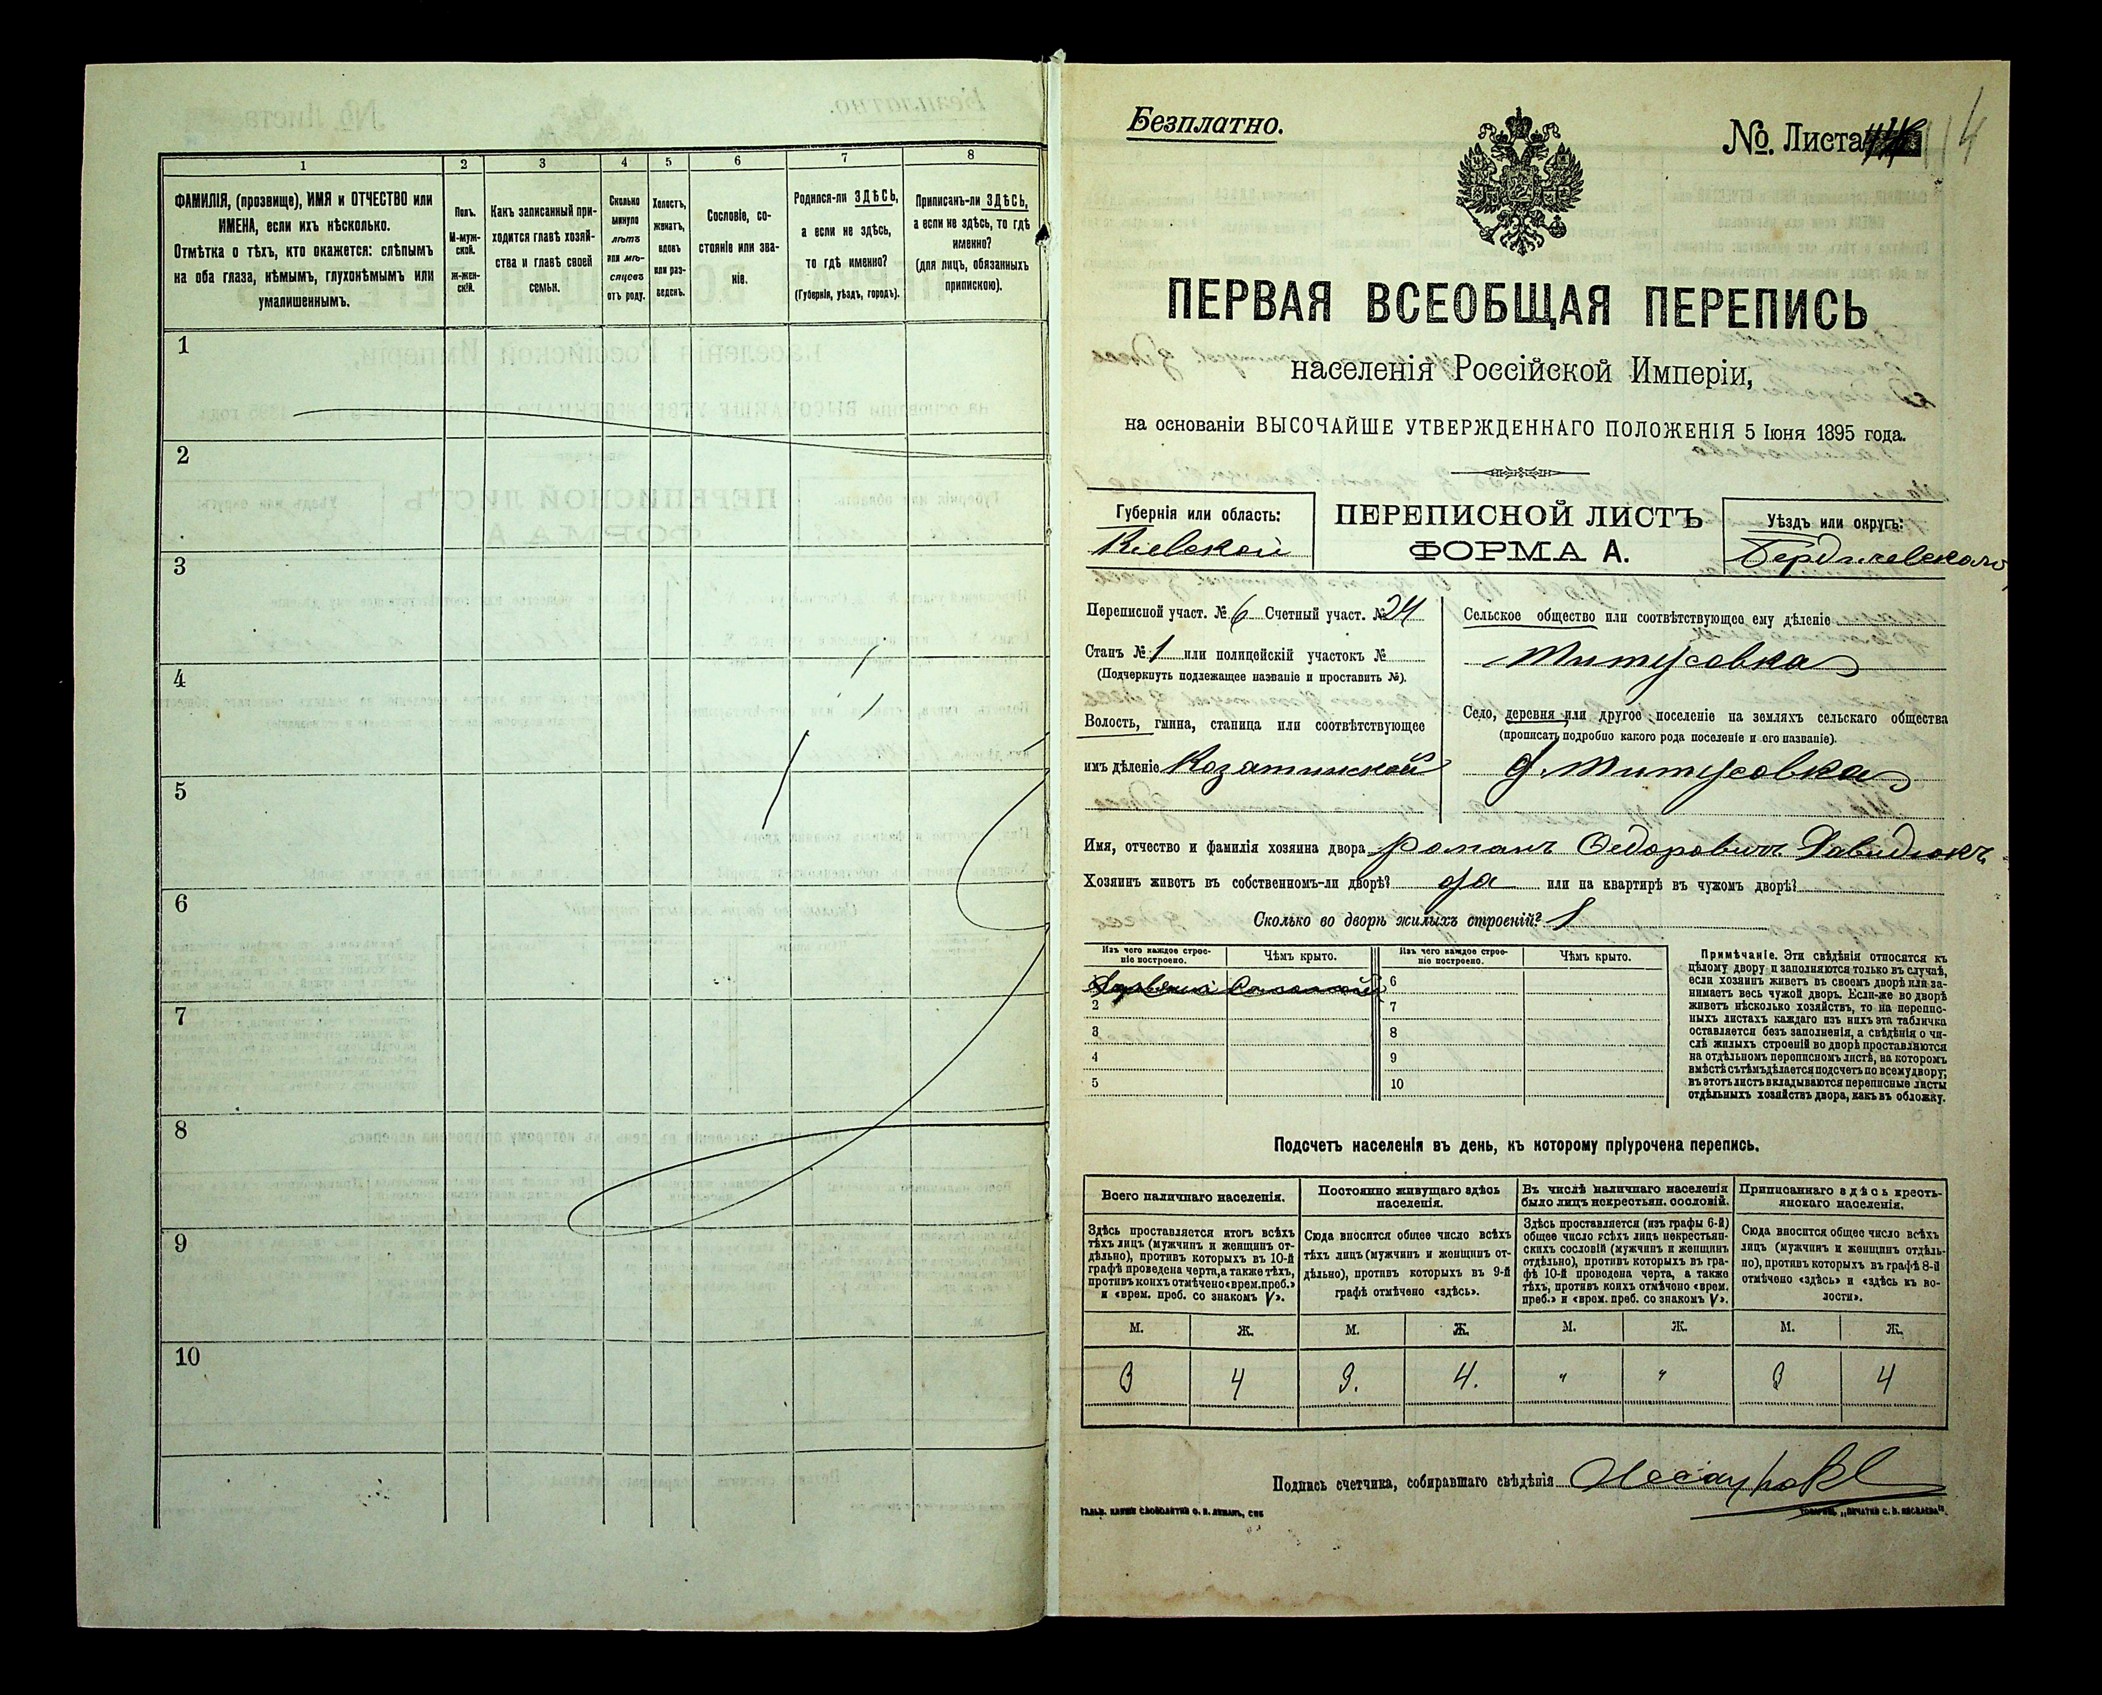 1
2
3
4
5
6
7
8
ФАМИЛІЯ, (прозвище), ИМЯ и ОТЧЕСТВО или
ИМЕНА, если ихъ нѣсколько.
Отмѣтка о тѣхъ, кто окажется: слѣпымъ
на оба глаза, нѣмымъ, глухонѣмымъ или
умалишеннымъ.
Полъ.
М-муж-
ской.
ж-жен-
скій.
Какъ записанный при-
ходится главѣ хозяй-
ства и главѣ своей
семьи.
Сколько
минуло
лѣтъ
или мѣ-
сяцевъ
отъ роду.
Холостъ,
женатъ,
вдовъ
или раз-
веденъ.
Сословіе, со-
стояніе или зва-
ніе.
Родился-ли ЗДѢСЬ,
а если не здѣсь,
то гдѣ именно?
(Губернія, уѣздъ, городъ).
Приписанъ-ли ЗДѢСЬ,
а если не здѣсь, то гдѣ
именно?
(для лицъ, обязанныхъ
припискою).
1
2
3
4
5
6
7
8
9
10
Безплатно.
№. Листа
114
ПЕРВАЯ ВСЕОБЩАЯ ПЕРЕПИСЬ
населенія Россійской Имперіи,
на основаніи ВЫСОЧАЙШЕ УТВЕРЖДЕННАГО ПОЛОЖЕНІЯ 5 Іюня 1895 года.
Губернія или область:
Кіевской
ПЕРЕПИСНОЙ ЛИСТЪ
ФОРМА А.
Уѣздъ или округъ:
Бердичевскаго
Переписной участ. № 6 Счетный участ. № 24
Станъ № 1 или полицейскій участокъ №
(Подчеркнуть подлежащее названіе и проставить №).
Волость, гмина, станица или соотвѣтствующее
имъ дѣленіе Козатинской
Сельское общество или соотвѣтствующее ему дѣленіе
Титусовка
Село, деревня или другое поселеніе на земляхъ сельскаго общества
(прописать подробно какого рода поселеніе и его названіе).
д. Титусовка
Имя, отчество и фамилія хозяина двора Романъ Федоровичъ Давидюкъ
Хозяинъ живетъ въ собственномъ-ли дворѣ? да или на квартирѣ въ чужомъ дворѣ?
Сколько во дворѣ жилыхъ строеній? 1
Изъ чего каждое строе-
ніе построено.
Чѣмъ крыто.
Изъ чего каждое строе-
ніе построено.
Чѣмъ крыто.
Деревянный Соломой
6
2
7
3
8
4
9
5
10
Примѣчаніе. Эти свѣдѣнія относятся къ
цѣлому двору и заполняются только въ случаѣ,
если хозяинъ живетъ въ своемъ дворѣ или за-
нимаетъ весь чужой дворъ. Если-же во дворѣ
живетъ нѣсколько хозяйствъ, то на перепис-
ныхъ листахъ каждаго изъ нихъ эта табличка
оставляется безъ заполненія, а свѣдѣнія о чи-
слѣ жилыхъ строеній во дворѣ проставляются
на отдѣльномъ переписномъ листѣ, на которомъ
вмѣстѣ съ тѣмъ дѣлается подсчетъ по всему двору;
въ этотъ листъ вкладываются переписные листы
отдѣльныхъ хозяйствъ двора, какъ въ обложку.
Подсчетъ населенія въ день, къ которому пріурочена перепись.
Всего наличнаго населенія.
Здѣсь проставляется итогъ всѣхъ
тѣхъ лицъ (мужчинъ и женщинъ от-
дѣльно), противъ которыхъ въ 10-й
графѣ проведена черта, а также тѣхъ,
противъ коихъ отмѣчено «врем. преб.»
и «врем. преб. со знакомъ V».
Постоянно живущаго здѣсь
населенія.
Сюда вносится общее число всѣхъ
тѣхъ лицъ (мужчинъ и женщинъ от-
дѣльно), противъ которыхъ въ 9-й
графѣ отмѣчено «здѣсь».
Въ числѣ наличнаго населенія
было лицъ некрестьян. сословій.
Здѣсь проставляется (изъ графы 6-й)
общее число всѣхъ лицъ некрестьян-
скихъ сословій (мужчинъ и женщинъ
отдѣльно), противъ которыхъ въ гра-
фѣ 10-й проведена черта, а также
тѣхъ, противъ коихъ отмѣчено «врем.
преб.» и «врем. преб. со знакомъ V».
Приписаннаго здѣсь кресть-
янскаго населенія.
Сюда вносится общее число всѣхъ
лицъ (мужчинъ и женщинъ отдѣль-
но), противъ которыхъ въ графѣ 8-й
отмѣчено «здѣсь» и «здѣсь въ во-
лости».
М. Ж. М. Ж. М. Ж. М. Ж.
3 4 3. 4. " " 3 4
Подпись счетчика, собиравшаго свѣдѣнія
ГАЛЬВ. КЛИШЕ СЛОВОЛИТНИ О. И. ЛЕМАНЪ, СПБ
ТОВАРИЩ. „ПЕЧАТНЯ С. П. ЯКОВЛЕВА".